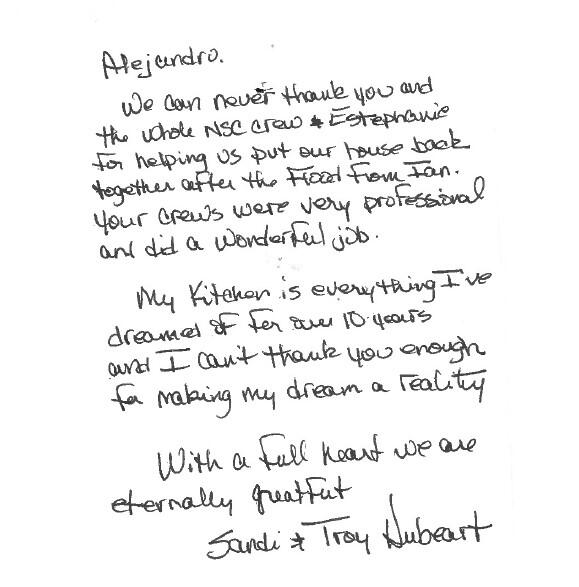 Alejandro.
We can never thank you and
the whole NSC crew & Estephanie
for helping us put our house back
together after the Flood From Ian.
Your crews were very professional
and did a wonderful job.
My Kitchen is everything I've
dreamed of for over 10 years
and I can't thank you enough
for making my dream a reality
With a full heart we are
eternally greatful
Sandi & Troy Hubeart